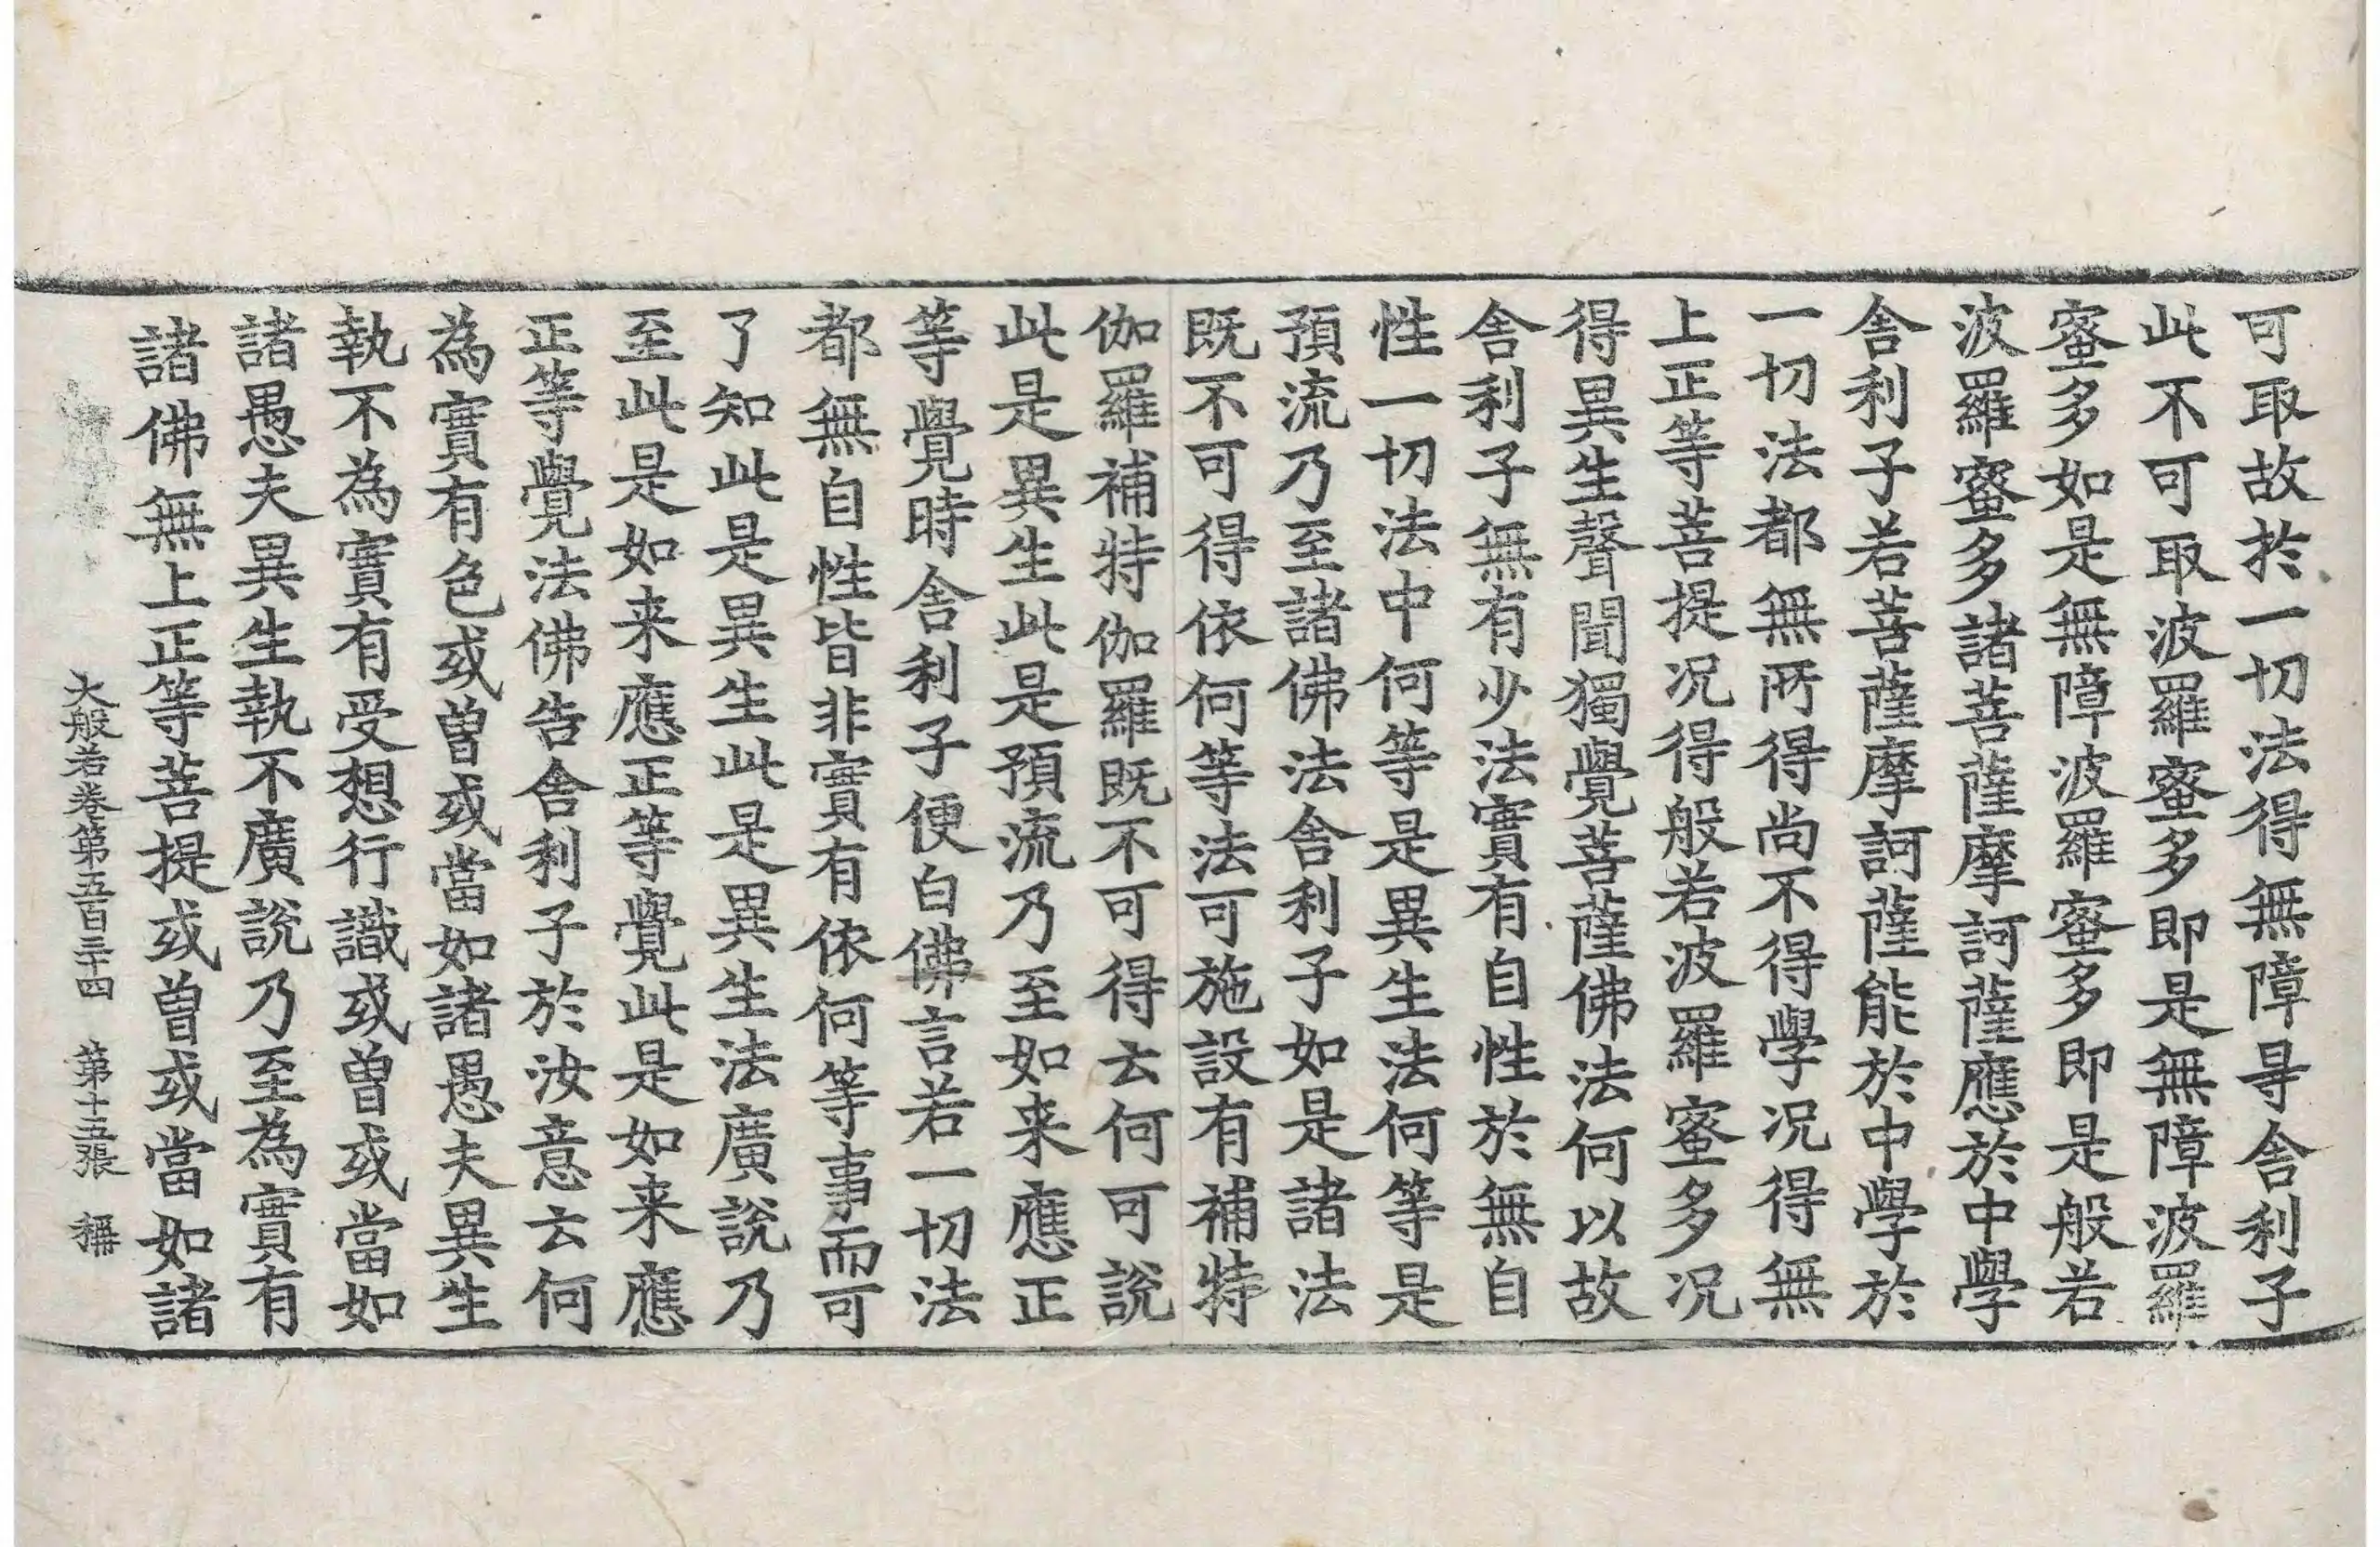 可取故於一切法得無障㝵舍利子
此不可取波羅蜜多即是無障波羅
蜜多如是無障波羅蜜多即是般若
波羅蜜多諸菩薩摩訶薩應於中學
舍利子若菩薩摩訶薩能於中學於
一切法都無所得尚不得學况得無
上正等菩提况得般若波羅蜜多况
得異生聲聞獨覺菩薩佛法何以故
舍利子無有少法實有自性於無自
性一切法中何等是異生法何等是
預流乃至諸佛法舍利子如是諸法
既不可得依何等法可施設有補特
伽羅補特伽羅既不可得云何可說
此是異生此是預流乃至如来應正
等覺時舍利子便白佛言若一切法
都無自性皆非實有依何等事而可
了知此是異生此是異生法廣說乃
至此是如来應正等覺此是如来應
正等覺法佛告舍利子於汝意云何
為實有色或曾或當如諸愚夫異生
執不為實有受想行識或曾或當如
諸愚夫異生執不廣說乃至為實有
諸佛無上正等菩提或曾或當如諸
大般若卷第五百三十四 第十五張 稱